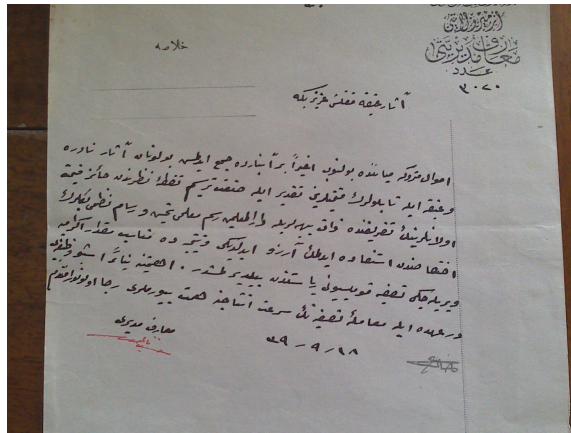 ازمير ولايتى
معارف مديريتى
عدد
٣٠٢٠
خلاصه
آثار عتيقه مفتشى عزيز بكه
اموال متروكه ميانده بولنوب اخيراً بر آنبارده جمع ايدلمش بولونان آثار نادره
وعتيقه ايله تابلولرك قيمتلرينى تقدير ايله صنعت ترسيم نقطهٔ نظرندن حائز قيمت
اولانلرينك تفريقنده ذوات دارالمعلمين رسم معلمى تحسين ورسام نظمى بكلرك
اختصاصندن استفاده ايدلمك آرزو ايدلديكى ونتيجه ده تعاسب مقدار اكراميه
ويريله جكى تصفيه قوميسيونى رياستندن بيلديرلمشدر. اهميتنه بناءً اشبو وظيفه يى
درعهده ايله معاملهٔ تصفيه نك سرعت انتاجنه همت بيورملرى رجا اولونور افندم
١٨/٩/٣٩
معارف مديرى